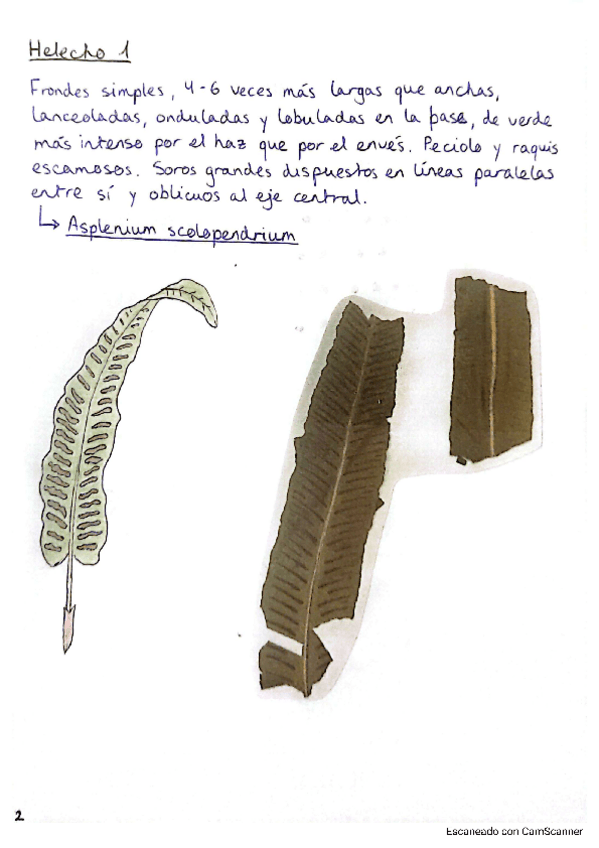 Helecho 1
Frondes simples, 4-6 veces más largas que anchas,
lanceoladas, onduladas y lobuladas en la base, de verde
más intenso por el haz que por el envés. Peciolo y raquis
escamosos. Soros grandes dispuestos en líneas paralelas
entre sí y oblicuos al eje central.
↳ Asplenium scolopendrium
2
Escaneado con CamScanner